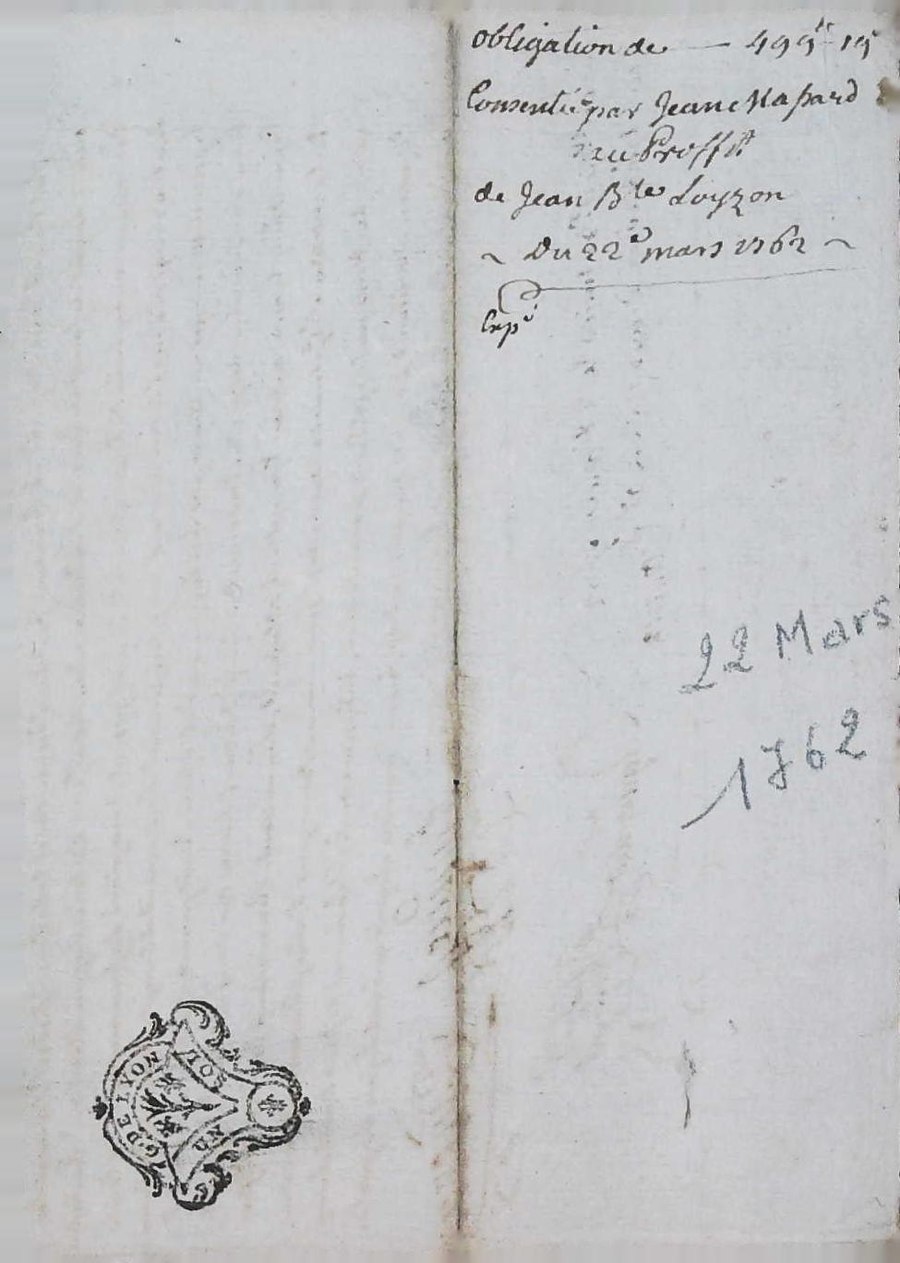 obligation de — 495tt 15
Consentie par Jeane
au Proffit
de Jean Bte Loyzon
~ Du 22e mars 1762 ~
Expe
22 Mars
1762
G. DE LYON
SOL
UN